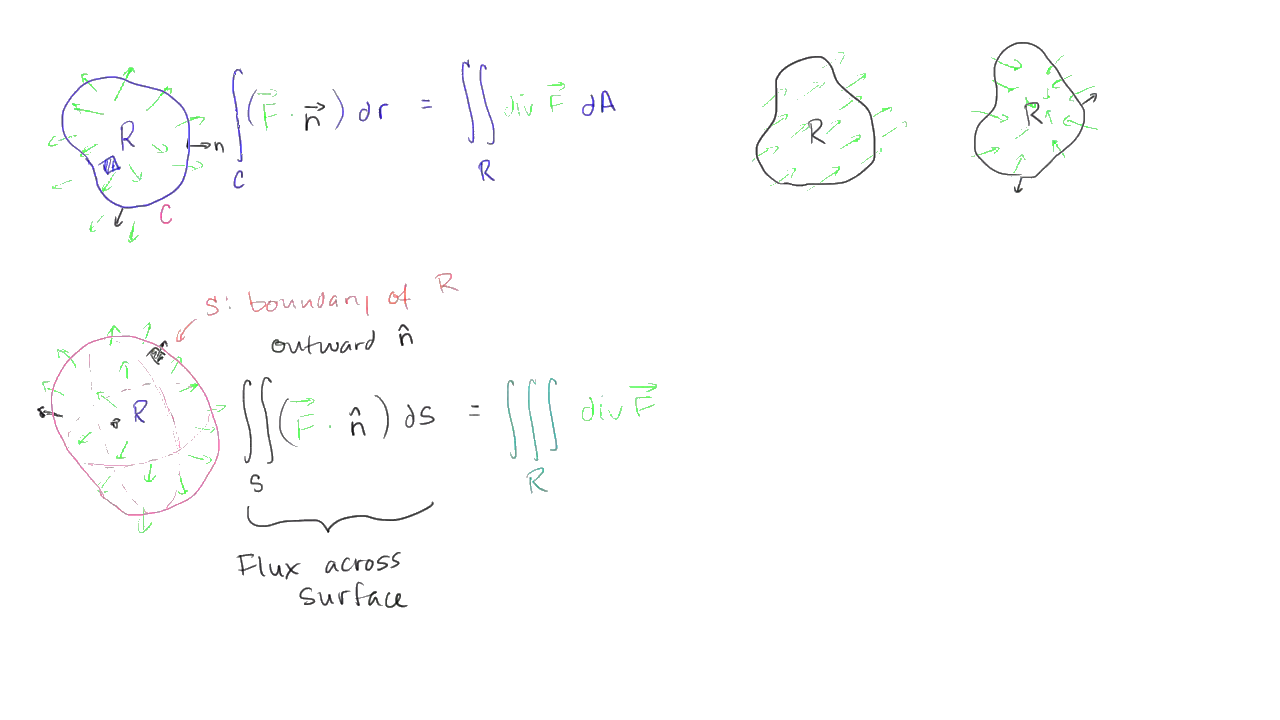 R
n
C
∫ (F⃗ · n⃗) dr = ∬ div F⃗ dA
C R
R
R
S: boundary of R
outward n̂
R
∬ (F⃗ · n̂) dS = ∭ div F⃗
S R
Flux across
surface